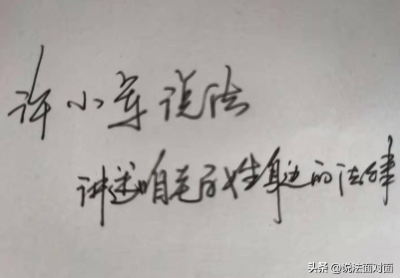 许小军说法
讲述咱老百姓身边的法律
头条 @说法面对面